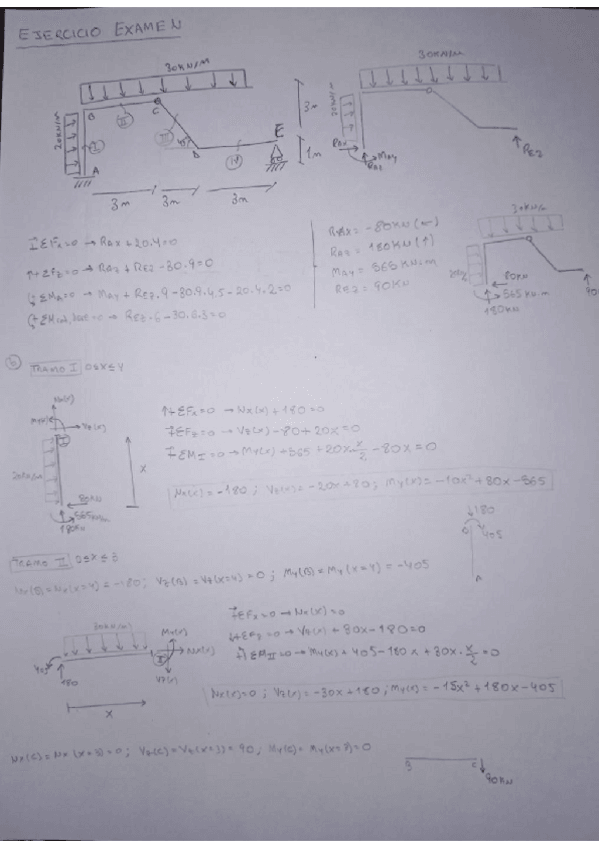 EJERCICIO EXAMEN
30KN/M
30KN/M
20KN/M
B
II
C
3m
I
III
E
A
45°
D
IV
1m
3m
3m
3m
20KN/M
RAX
MAY
RAZ
REZ
ΣFx=0 → RAX + 20.4=0
↑+ ΣFz=0 → RAZ + REZ - 30.9=0
ΣMA=0 → MAY + REZ.9 - 30.9.4,5 - 20.4.2=0
→ REZ.6 - 30.6.3=0
RAX = -80KN (←)
RAZ = 180KN (↑)
MAY = 565 KN.m
REZ = 90KN
30KN/M
80KN
565 KN.m
180KN
90
b TRAMO I 0≤X≤4
Nx(x)
My(x)
Vz(x)
I
20KN/M
X
80KN
565KN.m
180KN
↑+ ΣFx=0 → Nx(x) + 180=0
ΣFz=0 → Vz(x) - 80 + 20x=0
ΣMI=0 → My(x) + 565 + 20x.x/2 - 80x=0
Nx(x) = -180 ; Vz(x) = -20x + 80 ; My(x) = -10x² + 80x - 565
180
B
405
A
TRAMO II 0≤X≤3
Nx(B)=Nx(x=4)=-180; Vz(B)=Vz(x=4)=0 ; My(B)=My(x=4)=-405
30KN/M
My(x)
Nx(x)
Vz(x)
405
180
X
ΣFx=0 → Nx(x)=0
ΣFz=0 → Vz(x) + 30x - 180=0
ΣMII=0 → My(x) + 405 - 180x + 30x.x/2=0
Nx(x)=0 ; Vz(x)=-30x + 180 ; My(x) = -15x² + 180x - 405
Nx(C)=Nx(x=3)=0; Vz(C)=Vz(x=3)=90; My(C)=My(x=3)=0
B
C
90KN